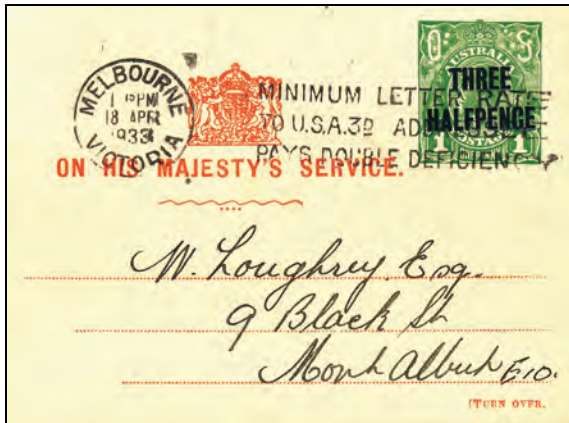 MELBOURNE
1 PM
18 APR
1933
VICTORIA
MINIMUM LETTER RATE
TO U.S.A. 3D
PAYS DOUBLE DEFICIENT
O S
AUSTRALIA
THREE
HALFPENCE
POSTAGE
1 1
ON HIS MAJESTY'S SERVICE.
W. Loughrey Esq.
9 Black St
Mont Albert E10.
(TURN OVER.